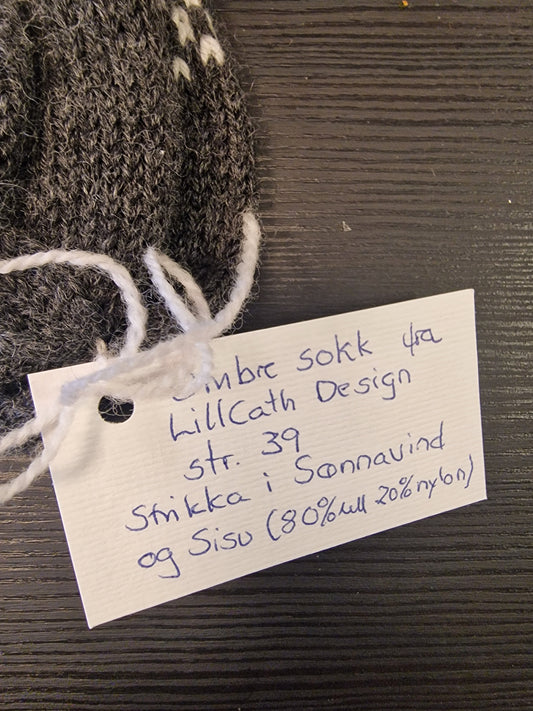 Ombre sokk fra
LillCath Design
str. 39
Strikka i Sønnavind
og Sisu (80% ull 20% nylon)